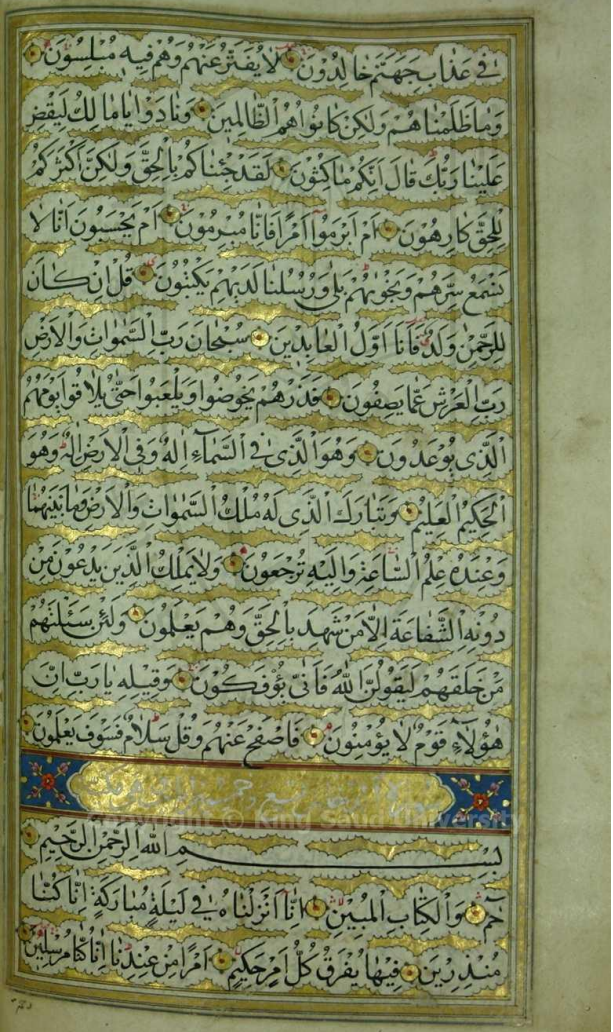 فِي عَذَابِ جَهَنَّمَ خَالِدُونَ لَا يُفَتَّرُ عَنْهُمْ وَهُمْ فِيهِ مُبْلِسُونَ
وَمَا ظَلَمْنَاهُمْ وَلَكِنْ كَانُوا هُمُ الظَّالِمِينَ وَنَادَوْا يَا مَالِكُ لِيَقْضِ
عَلَيْنَا رَبُّكَ قَالَ إِنَّكُمْ مَاكِثُونَ لَقَدْ جِئْنَاكُمْ بِالْحَقِّ وَلَكِنَّ أَكْثَرَكُمْ
لِلْحَقِّ كَارِهُونَ أَمْ أَبْرَمُوا أَمْرًا فَإِنَّا مُبْرِمُونَ أَمْ يَحْسَبُونَ أَنَّا لَا
نَسْمَعُ سِرَّهُمْ وَنَجْوٰيهُمْ بَلَى وَرُسُلُنَا لَدَيْهِمْ يَكْتُبُونَ قُلْ إِنْ كَانَ
لِلرَّحْمٰنِ وَلَدٌ فَأَنَا أَوَّلُ الْعَابِدِينَ سُبْحَانَ رَبِّ السَّمٰوَاتِ وَالْأَرْضِ
رَبِّ الْعَرْشِ عَمَّا يَصِفُونَ فَذَرْهُمْ يَخُوضُوا وَيَلْعَبُوا حَتَّى يُلَاقُوا يَوْمَهُمُ
الَّذِي يُوعَدُونَ وَهُوَ الَّذِي فِي السَّمَاءِ إِلٰهٌ وَفِي الْأَرْضِ إِلٰهٌ وَهُوَ
الْحَكِيمُ الْعَلِيمُ وَتَبَارَكَ الَّذِي لَهُ مُلْكُ السَّمٰوَاتِ وَالْأَرْضِ وَمَا بَيْنَهُمَا
وَعِنْدَهُ عِلْمُ السَّاعَةِ وَإِلَيْهِ تُرْجَعُونَ وَلَا يَمْلِكُ الَّذِينَ يَدْعُونَ مِنْ
دُونِهِ الشَّفَاعَةَ إِلَّا مَنْ شَهِدَ بِالْحَقِّ وَهُمْ يَعْلَمُونَ وَلَئِنْ سَئَلْتَهُمْ
مَنْ خَلَقَهُمْ لَيَقُولُنَّ اللّٰهُ فَأَنَّى يُؤْفَكُونَ وَقِيلِهِ يَا رَبِّ إِنَّ
هٰؤُلَاءِ قَوْمٌ لَا يُؤْمِنُونَ فَاصْفَحْ عَنْهُمْ وَقُلْ سَلَامٌ فَسَوْفَ يَعْلَمُونَ
Copyright © King Saud University
بِسْمِ اللّٰهِ الرَّحْمٰنِ الرَّحِيمِ
حٰم وَالْكِتَابِ الْمُبِينِ إِنَّا أَنْزَلْنَاهُ فِي لَيْلَةٍ مُبَارَكَةٍ إِنَّا كُنَّا
مُنْذِرِينَ فِيهَا يُفْرَقُ كُلُّ أَمْرٍ حَكِيمٍ أَمْرًا مِنْ عِنْدِنَا إِنَّا كُنَّا مُرْسِلِينَ